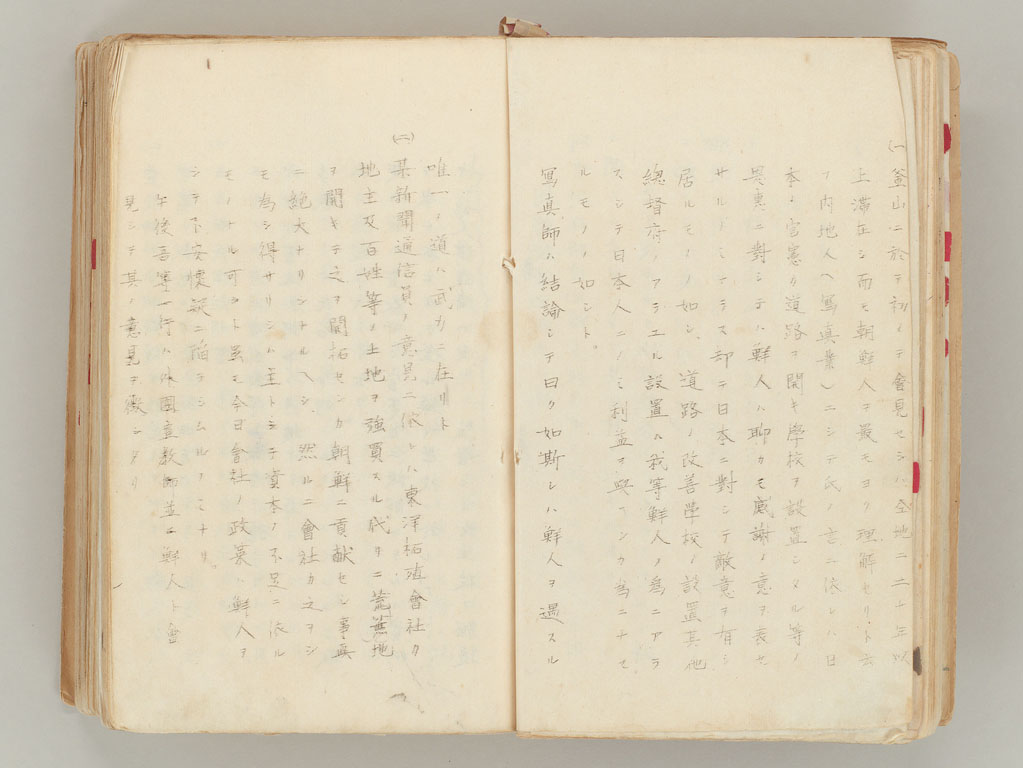 (一)釜山ニ於テ初メテ會見セシハ仝地ニ二十年以
上滞在シ而モ朝鮮人ヲ最モヨク理解セリト云
フ内地人(寫真業)ニシテ氏ノ言ニ依レハ日
本ノ官憲カ道路ヲ開キ學校ヲ設置シタル等ノ
恩惠ニ對シテハ鮮人ハ聊カモ感謝ノ意ヲ表セ
サルノミナラス却ニ日本ニ對シテ敵意ヲ有シ
居ルモノノ如シ、道路ノ改善學校ノ設置其他
總督府ノアラユル設置ハ我等鮮人ノ為ニアラ
スシテ日本人ニノミ利益ヲ與ヘンカ為ニナセ
ルモノノ如シト。
寫真師ハ結論シテ曰ク如斯レハ鮮人ヲ遇スル
唯一ノ道ハ武力ニ在リト
(二)某新聞通信員ノ意見ニ依レハ東洋拓殖會社カ
地主及百姓等ノ土地ヲ強買スル代リニ荒蕪地
ヲ開キテ之ヲ開拓センカ朝鮮ニ貢献セシ事真
ニ絶大ナリシナルヘシ 然ルニ會社カ之ヲシ
モ為シ得サリシハ主トシテ資本ノ不足ニ依ル
モノナル可シト虽モ今日會社ノ政策ハ鮮人ヲ
シテ不安懷疑ニ陥ラシムルノミナリ
午後吾等一行ハ 宣教師並ニ鮮人ト會
見シテ其ノ意見ヲ徴シタリ